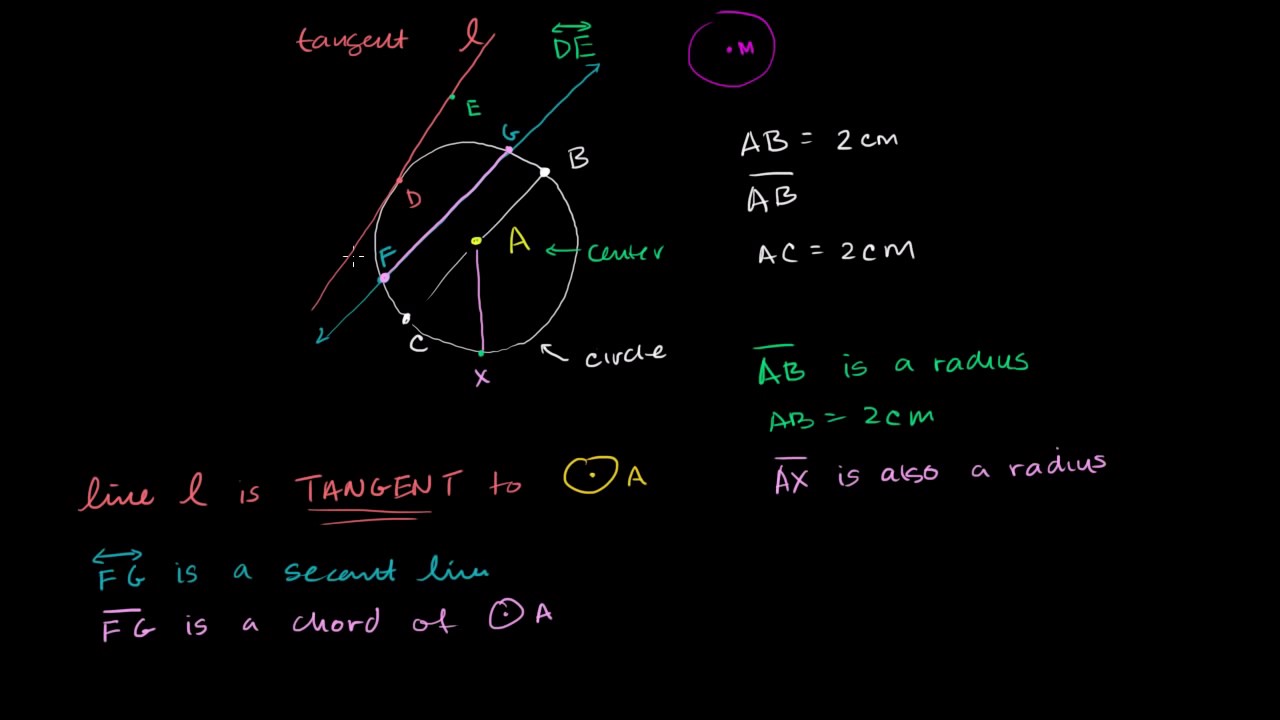 tangent l
DE
M
E
G
B
D
A
F
center
C
circle
X
AB = 2 cm
AB
AC = 2 cm
AB is a radius
AB = 2 cm
AX is also a radius
line l is TANGENT to ⊙ A
FG is a secant line
FG is a chord of ⊙ A